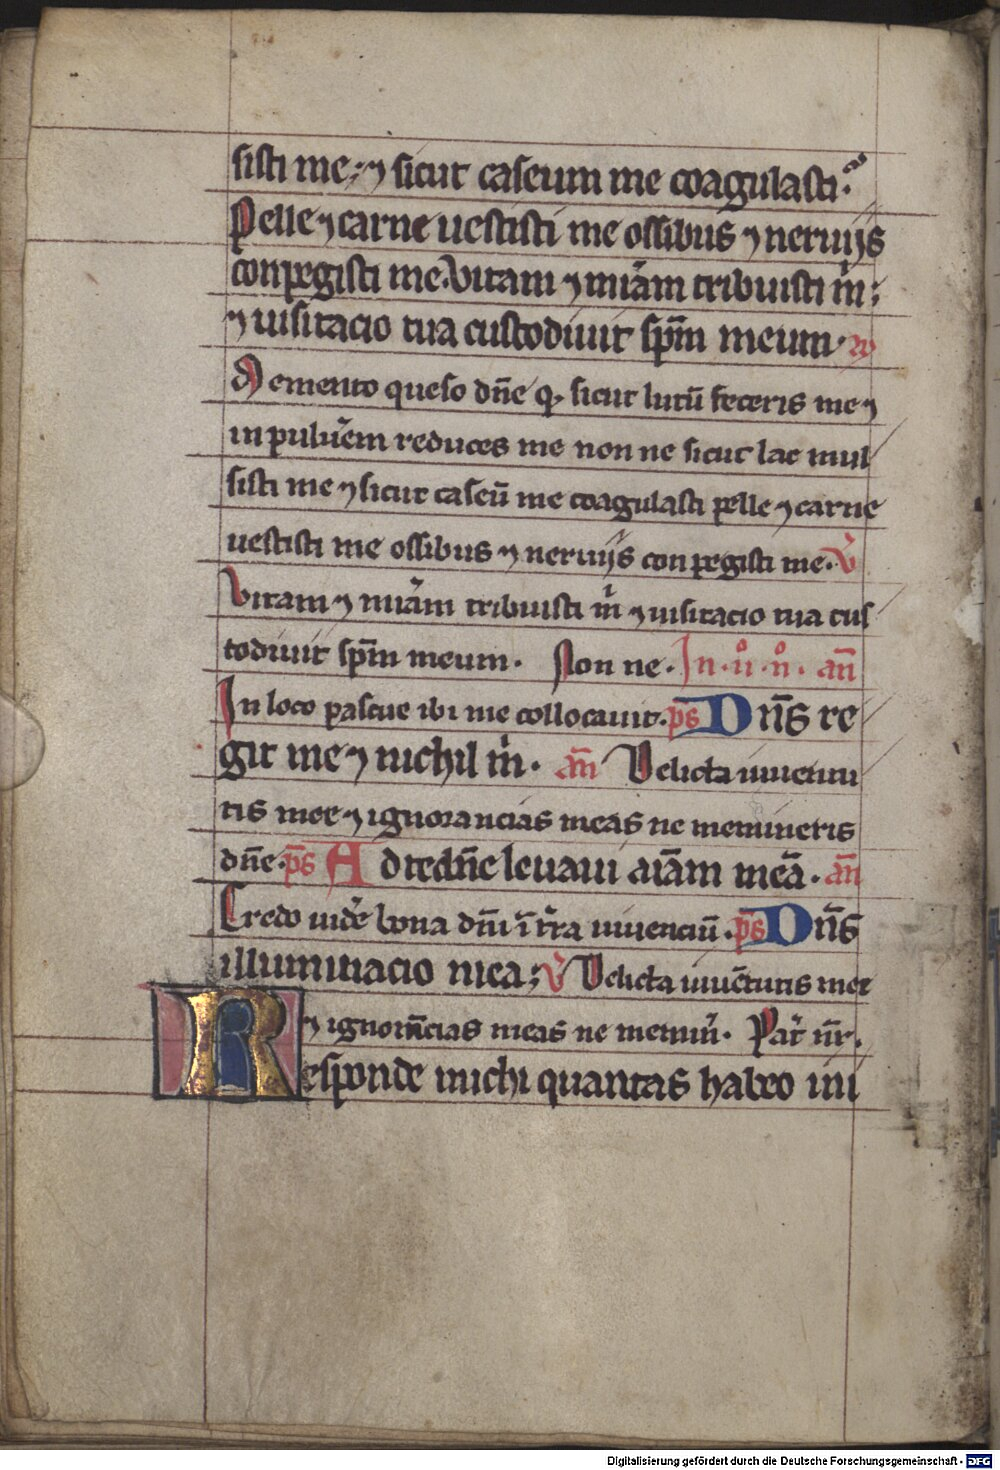 sisti me· ⁊ sicut caseum me coagulasti·
Pelle ⁊ carne uestisti me ossibus ⁊ neruijs
conpegisti me· Vitam ⁊ miām tribuisti m̄·
⁊ uisitacio tua custodiuit sp̄m meum· R̸
Memento queso dn̄e q· sicut lutū feceris me ⁊
in puluẽem reduces me non ne sicut lac mul
sisti me ⁊ sicut caseū me coagulasti pelle ⁊ carne
uestisti me ossibus ⁊ neruijs con pegisti me· V̄
Vitam ⁊ miām tribuisti m̄ ⁊ uisitacio tua cus
todiuit sp̄m meum· Non ne· In· ii° n°· an̄
In loco pascue ibi me collocauit· p̄s Dn̄s re
git me ⁊ nichil m̄· an̄ Delicta iuuentu
tis mee ⁊ ignorancias meas ne memineris
dn̄e· p̄s Ad te dn̄e leuaui aīam meā· an̄
Credo uidẽ bona dn̄i ī tr̄a uiuenciū· p̄s Dn̄s
illuminacio mea· V̄ Delicta iuuētutis mee
⁊ ignorācias meas ne memīn̄· Pat̄ nr̄·
Responde michi quantas habeo ini
Digitalisierung gefördert durch die Deutsche Forschungsgemeinschaft - DFG